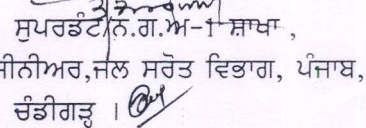 ਸੁਪਰਡੰਟ/ਨ.ਗ.ਅ-1 ਸ਼ਾਖਾ ,
ਜੀਨੀਅਰ,ਜਲ ਸਰੋਤ ਵਿਭਾਗ, ਪੰਜਾਬ,
ਚੰਡੀਗੜ੍ਹ ।